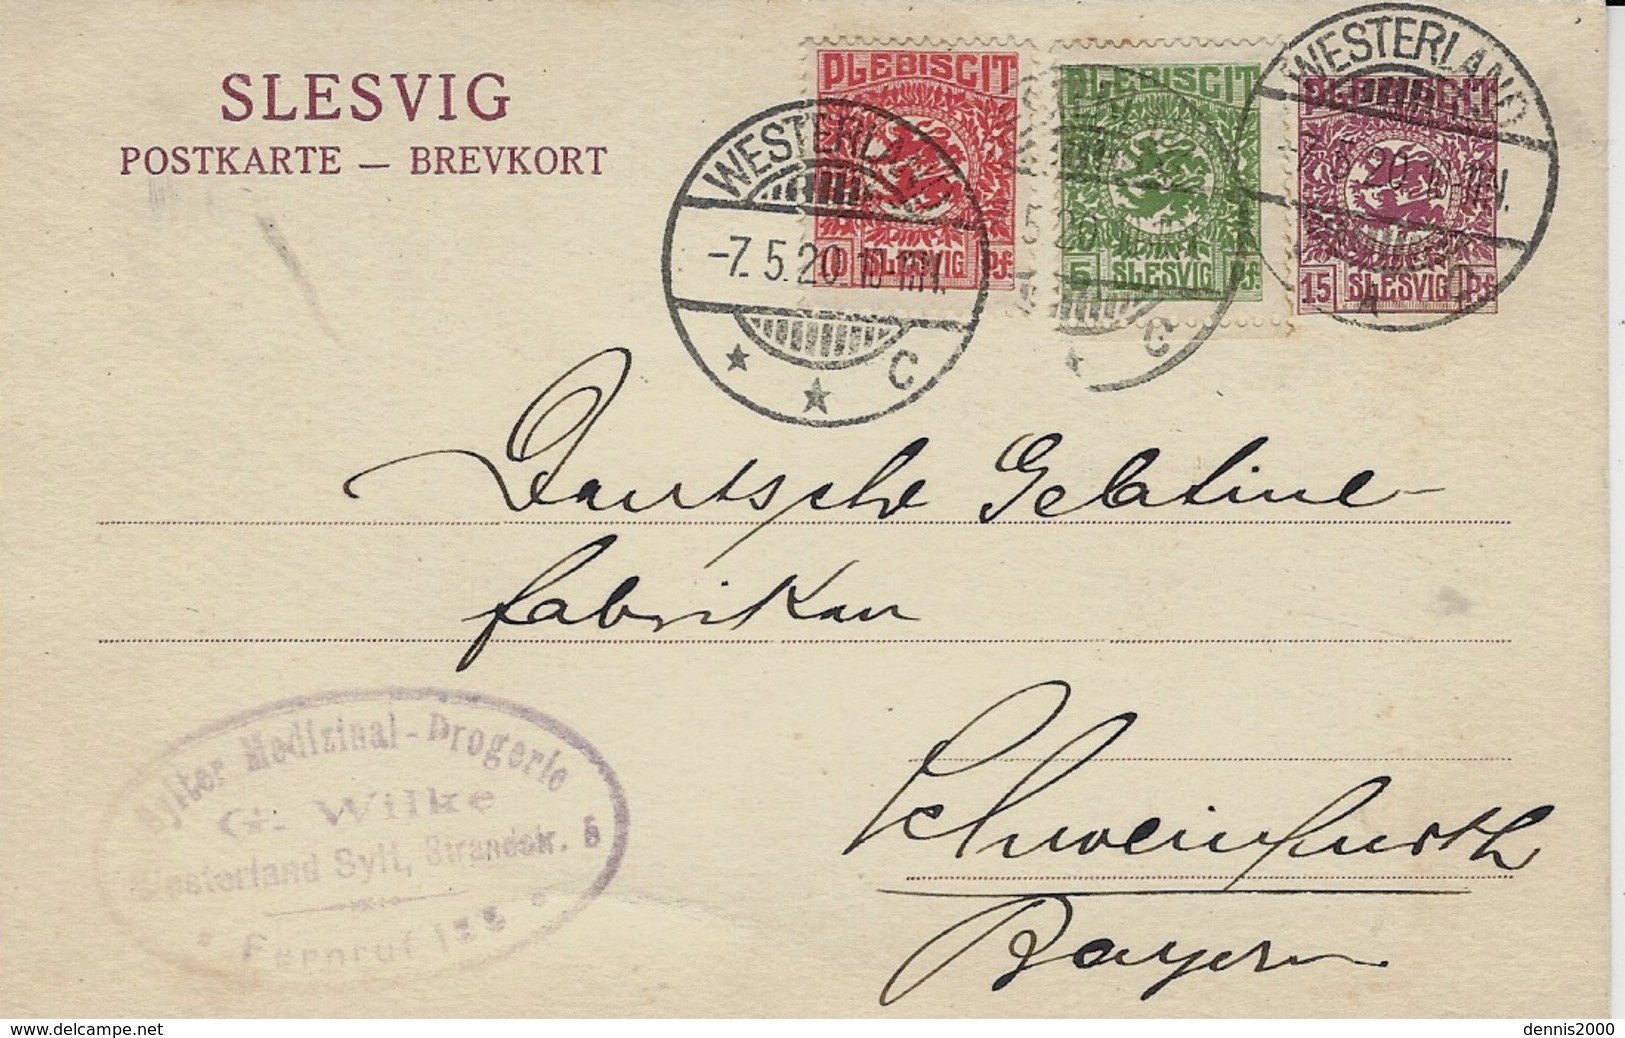 SLESVIG
POSTKARTE — BREVKORT
PLEBISCIT
10 SLESVIG Pf.
PLEBISCIT
5 SLESVIG Pf.
PLEBISCIT
15 SLESVIG Pf.
WESTERLAND
-7.5.20.
C
5 20
C
WESTERLAND
-7.5.20.
Deutsche Gelatine-
fabriken
Schweinfurth
Bayern
Sylter Medizinal-Drogerie
G. Wilke
Westerland Sylt, Strandstr. 8
Fernruf
www.delcampe.net
dennis2000